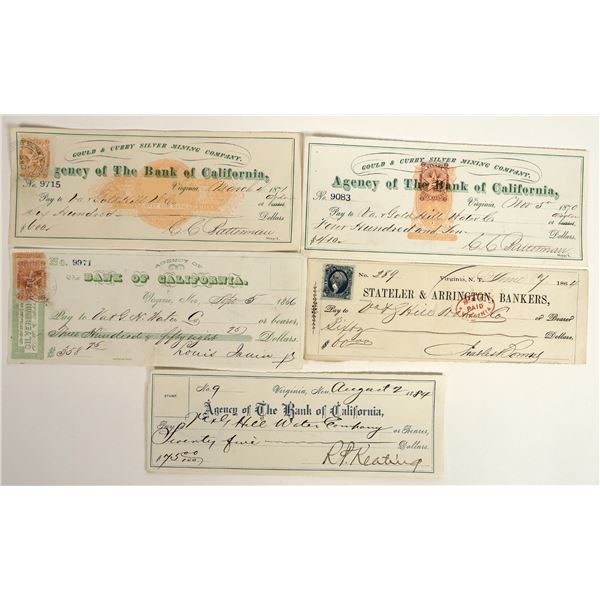 GOULD & CURRY SILVER MINING COMPANY.
gency of The Bank of California,
No. 9715 Virginia, March 1871
Pay to Va & Gold Hill
Six Hundred Dollars
$600
GOULD & CURRY SILVER MINING COMPANY.
Agency of The Bank of California,
No. 9083 Virginia, Nov 5 1870
Pay to Va. & Gold Hill Water Co or order
Four Hundred and Ten Dollars
$410
No. 9971 AGENCY OF
The BANK OF CALIFORNIA.
Virginia, Nev, Sept 5 1866
Pay to Va & G. H. Water Co or bearer,
Three Hundred fifty eight 75 Dollars,
$358 75 Louis Janin Jr
No. 289 Virginia, N. T. June 7 1864
STATELER & ARRINGTON, BANKERS,
Pay to Va & G Hill Water Co or Bearer
PAID
VIRGINIA
Sixty Dollars
$60.00 Charles
STAMP. No. 9 Virginia, Nev. August 2 1884
Agency of The Bank of California,
Pay Va & G Hill Water Company or Bearer,
Seventy five Dollars.
$75 00/100 R. P. Keating